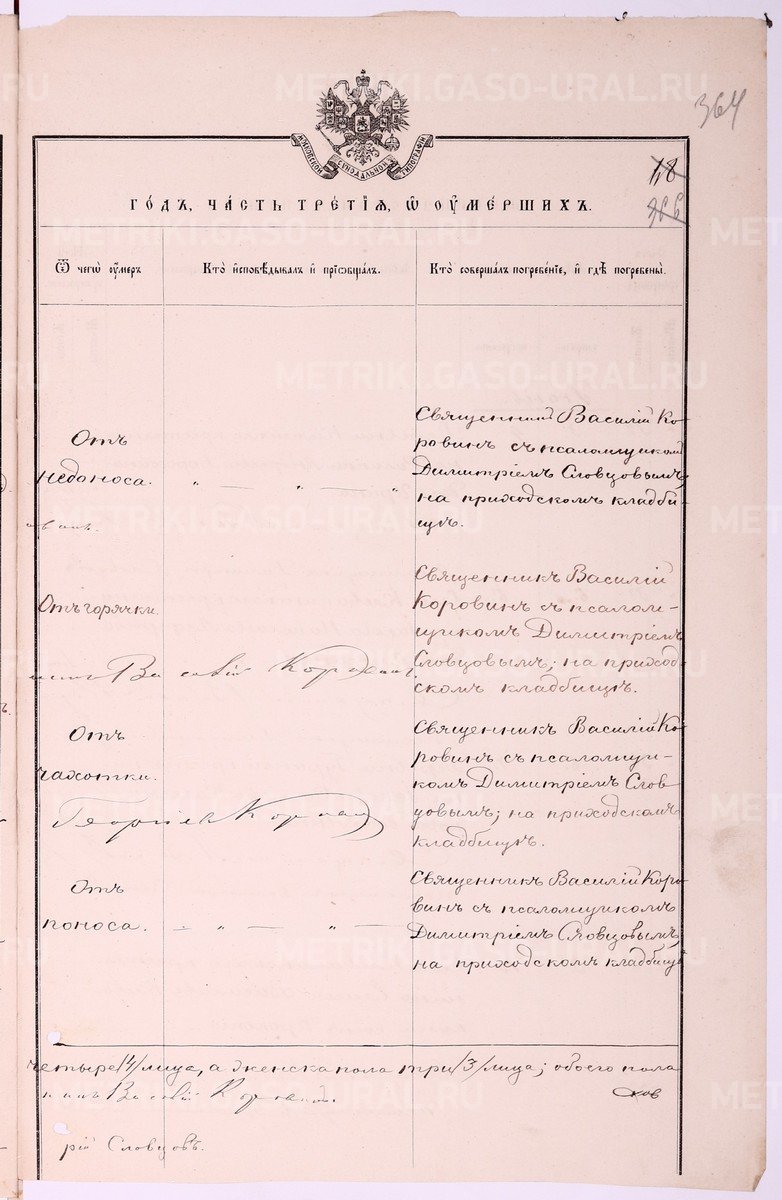 METRIKI.GASO-URAL.RU
364
МОСКОВСКОЙ СѴНОДАЛЬНОЙ ТИПОГРАФІИ
118
366
ГО́ДЪ, ЧА́СТЬ ТРЕ́ТІЯ, Ѿ ОУ҆МЕ́РШИХЪ.
Ѿ чегѡ̀ оу҆́меръ
Кто̀ и҆сповѣ́дывалъ и҆ прїѡбща́лъ.
Кто̀ соверша́лъ погребе́нїе, и҆ гдѣ̀ погребены̀.
Отъ
недоноса.
Священникъ Василій Ко-
ровинъ съ псаломщикомъ
Димитріемъ Словцовымъ;
на приходскомъ кладби-
щѣ.
Отъ горячки.
Священникъ Василій
Коровинъ съ псалом-
щикомъ Димитріемъ
Словцовымъ; на приход-
скомъ кладбищѣ.
Василій Коровинъ.
Отъ
чахотки.
Священникъ Василій Ко-
ровинъ съ псаломщи-
комъ Димитріемъ Слов-
цовымъ; на приходскомъ
кладбищѣ.
Георгій
Отъ
поноса.
Священникъ Василій Коро-
винъ съ псаломщикомъ
Димитріемъ Словцовымъ,
на приходскомъ кладбищѣ
четыре /4/ лица, а женска пола три /3/ лица; обоего пола
Василій Коровинъ.
рій Словцовъ.